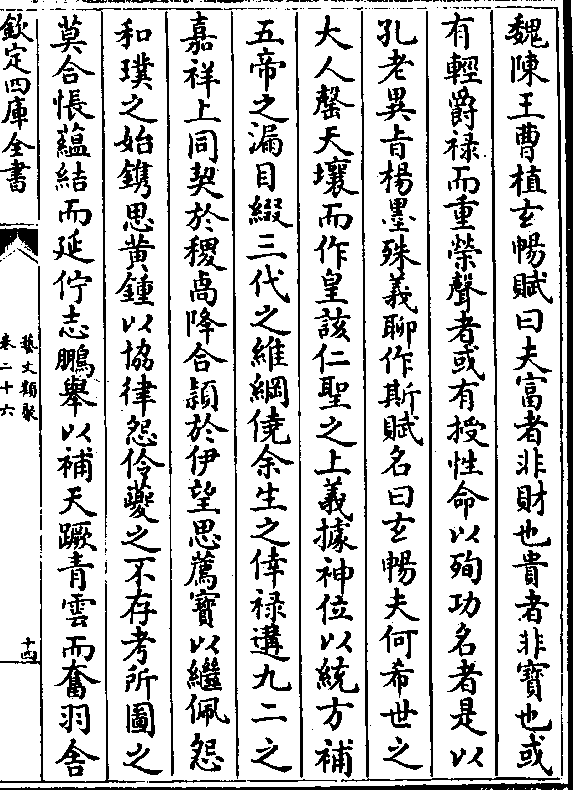 魏陳王曹植玄暢賦曰夫富者非財也貴者非寶也或
有輕爵祿而重榮聲者或有授性命以殉功名者是以
孔老異旨楊墨殊義聊作斯賦名曰玄暢夫何希世之
大人罄天壤而作皇該仁聖之上義據神位以統方補
五帝之漏目綴三代之維綱僥余生之倖祿遘九二之
嘉祥上同契於稷卨降合頴於伊望思薦寶以繼佩怨
和璞之始鐫思黃鍾以協律怨伶夔之不存考所圖之
莫合悵蘊結而延佇志鵬舉以補天蹶青雲而奮羽舍
欽定四庫全書
藝文類聚
卷二十六
十四